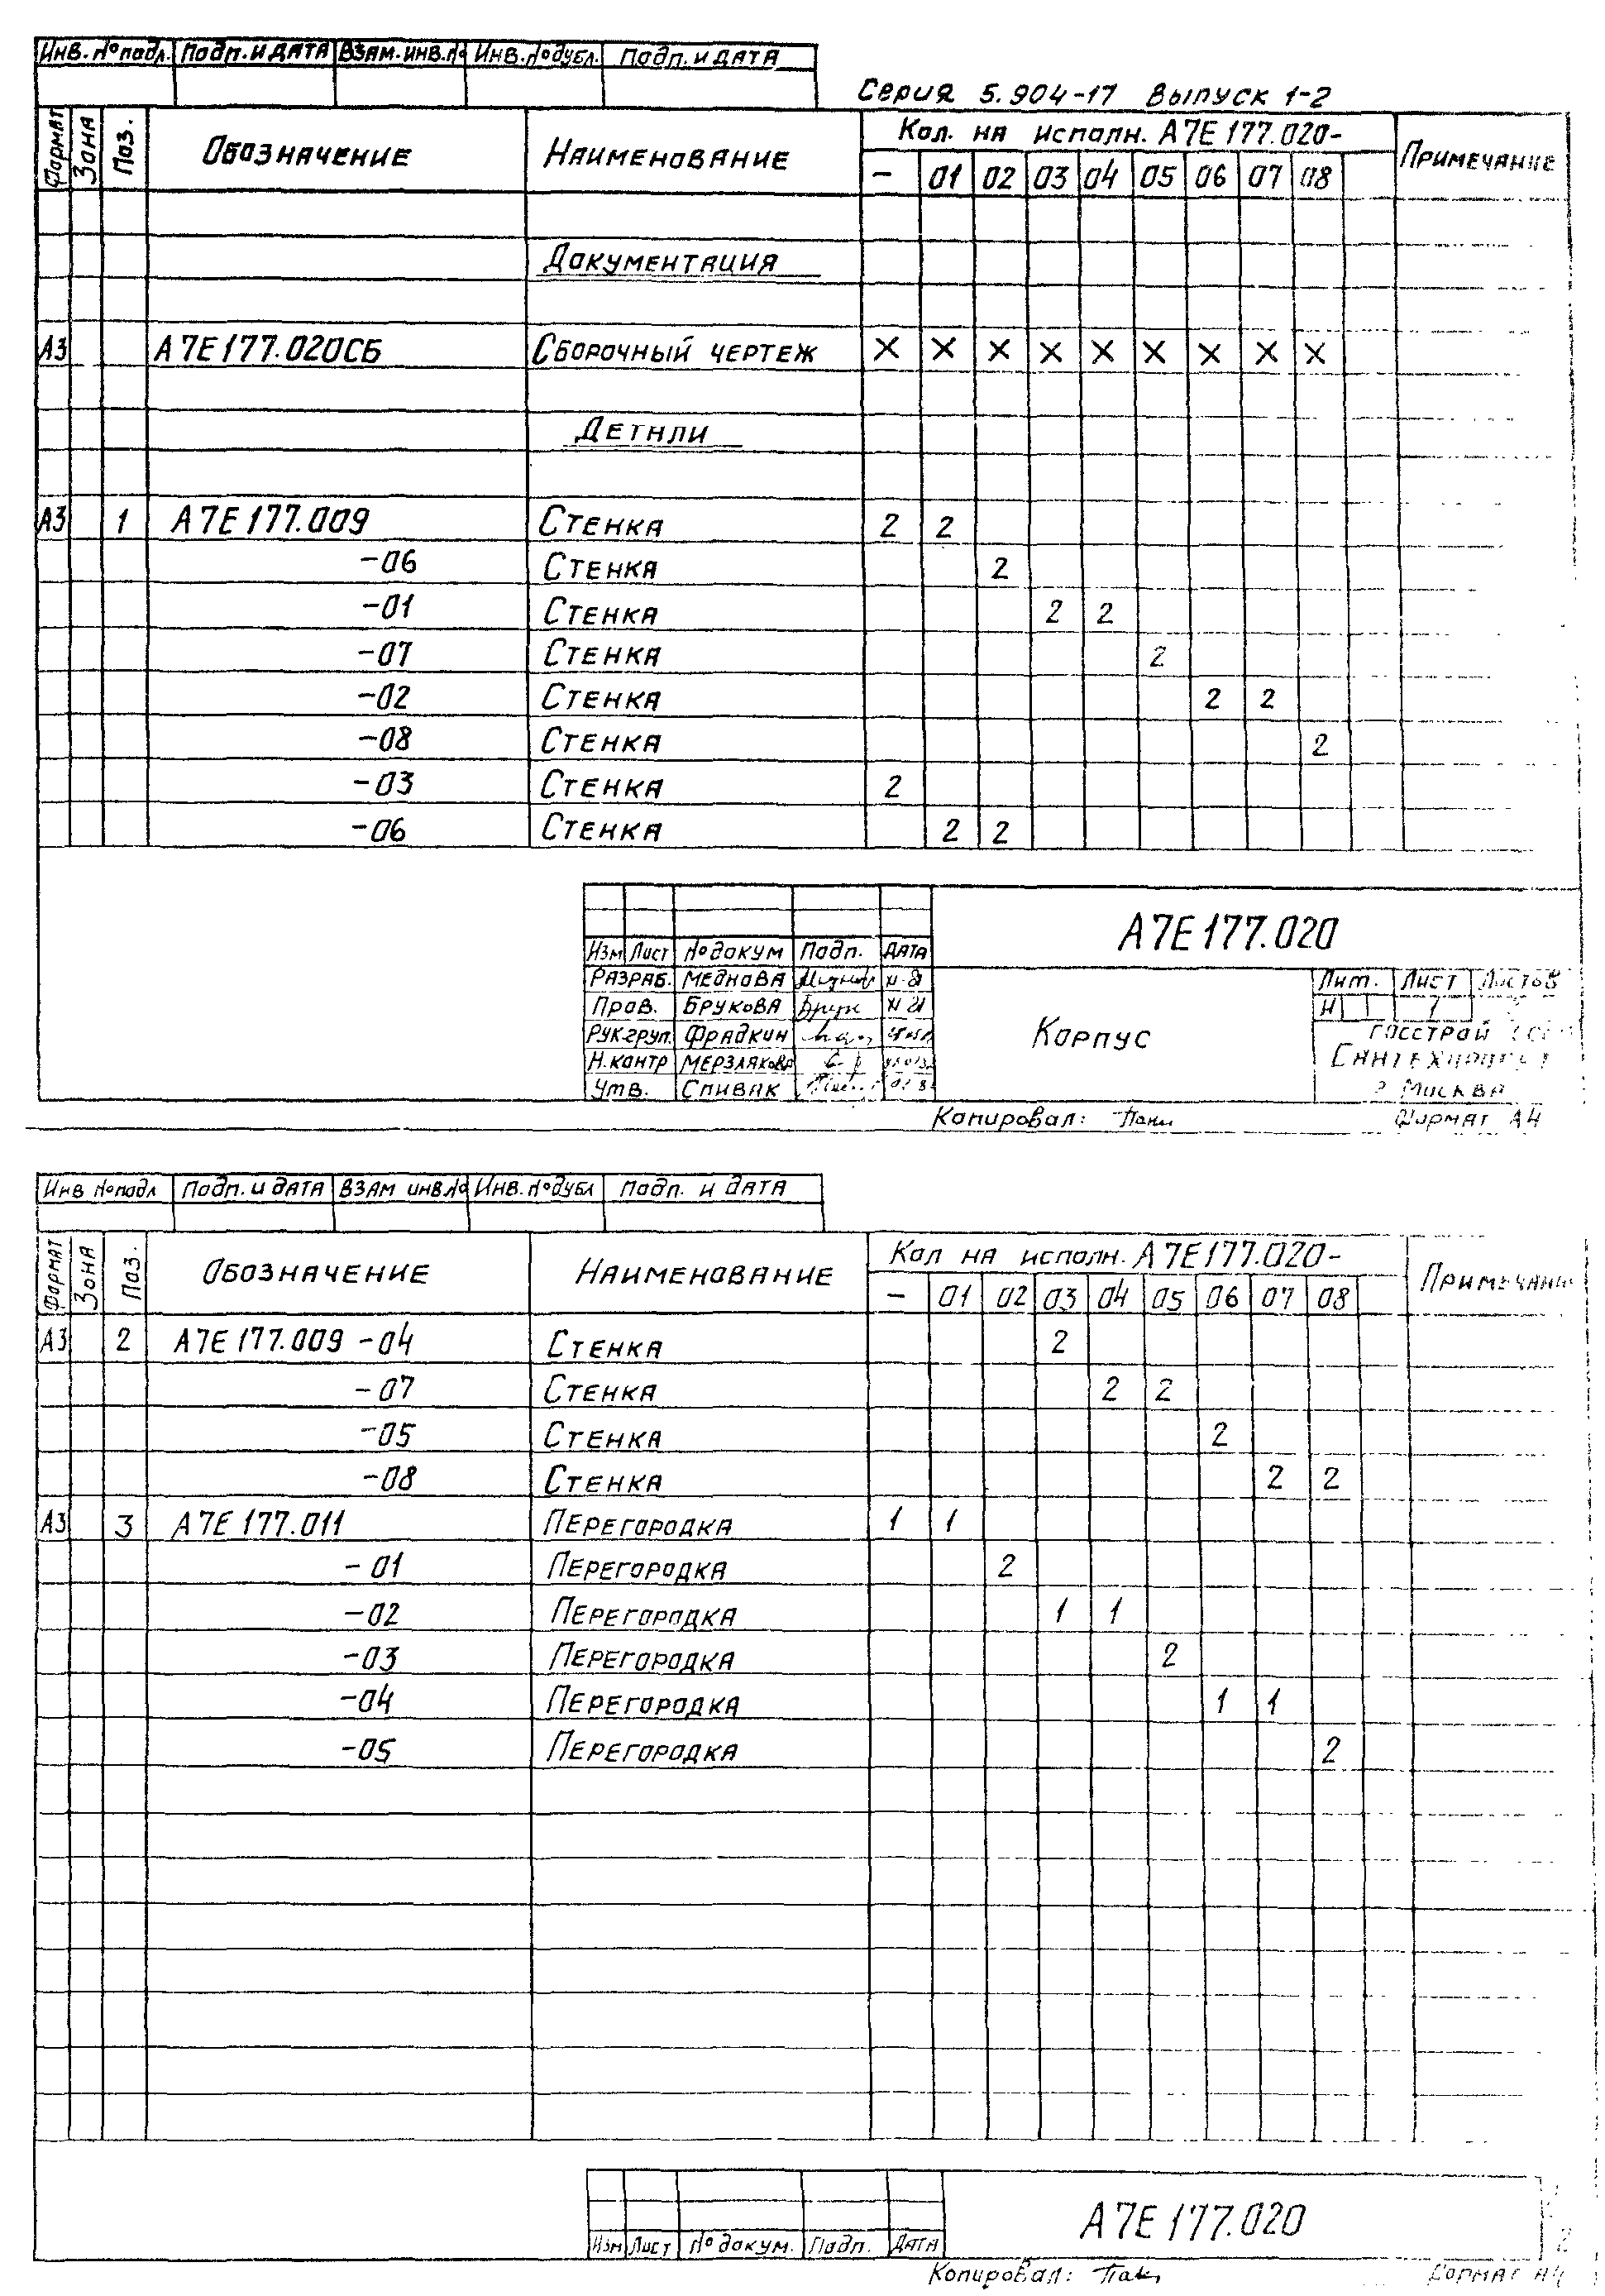 Инв. № подл. Подп. и дата Взам. инв. № Инв. № дубл. Подп. и дата
Серия 5.904-17 Выпуск 1-2
Формат Зона Поз. Обозначение Наименование Кол. на исполн. А7Е177.020- Примечание
– 01 02 03 04 05 06 07 08
Документация
А3 А7Е177.020СБ Сборочный чертеж × × × × × × × × ×
Детали
А3 1 А7Е177.009 Стенка 2 2
-06 Стенка 2
-01 Стенка 2 2
-07 Стенка 2
-02 Стенка 2 2
-08 Стенка 2
-03 Стенка 2
-06 Стенка 2 2
А7Е177.020
Изм Лист № докум Подп. Дата
Разраб. Меднова
Пров. Брукова
Рук.груп. Фрадкин
Н.контр Мерзлякова
Утв. Спивак
Корпус
Лит. Лист Листов
И 1
Госстрой
г Москва
Копировал: Формат А4
Инв № подл Подп. и дата Взам инв № Инв. № дубл Подп. и дата
Формат Зона Поз. Обозначение Наименование Кол на исполн. А7Е177.020- Примечание
– 01 02 03 04 05 06 07 08
А3 2 А7Е177.009-04 Стенка 2
-07 Стенка 2 2
-05 Стенка 2
-08 Стенка 2 2
А3 3 А7Е177.011 Перегородка 1 1
-01 Перегородка 2
-02 Перегородка 1 1
-03 Перегородка 2
-04 Перегородка 1 1
-05 Перегородка 2
А7Е177.020
2
Изм Лист № докум. Подп. Дата
Копировал: Формат А4